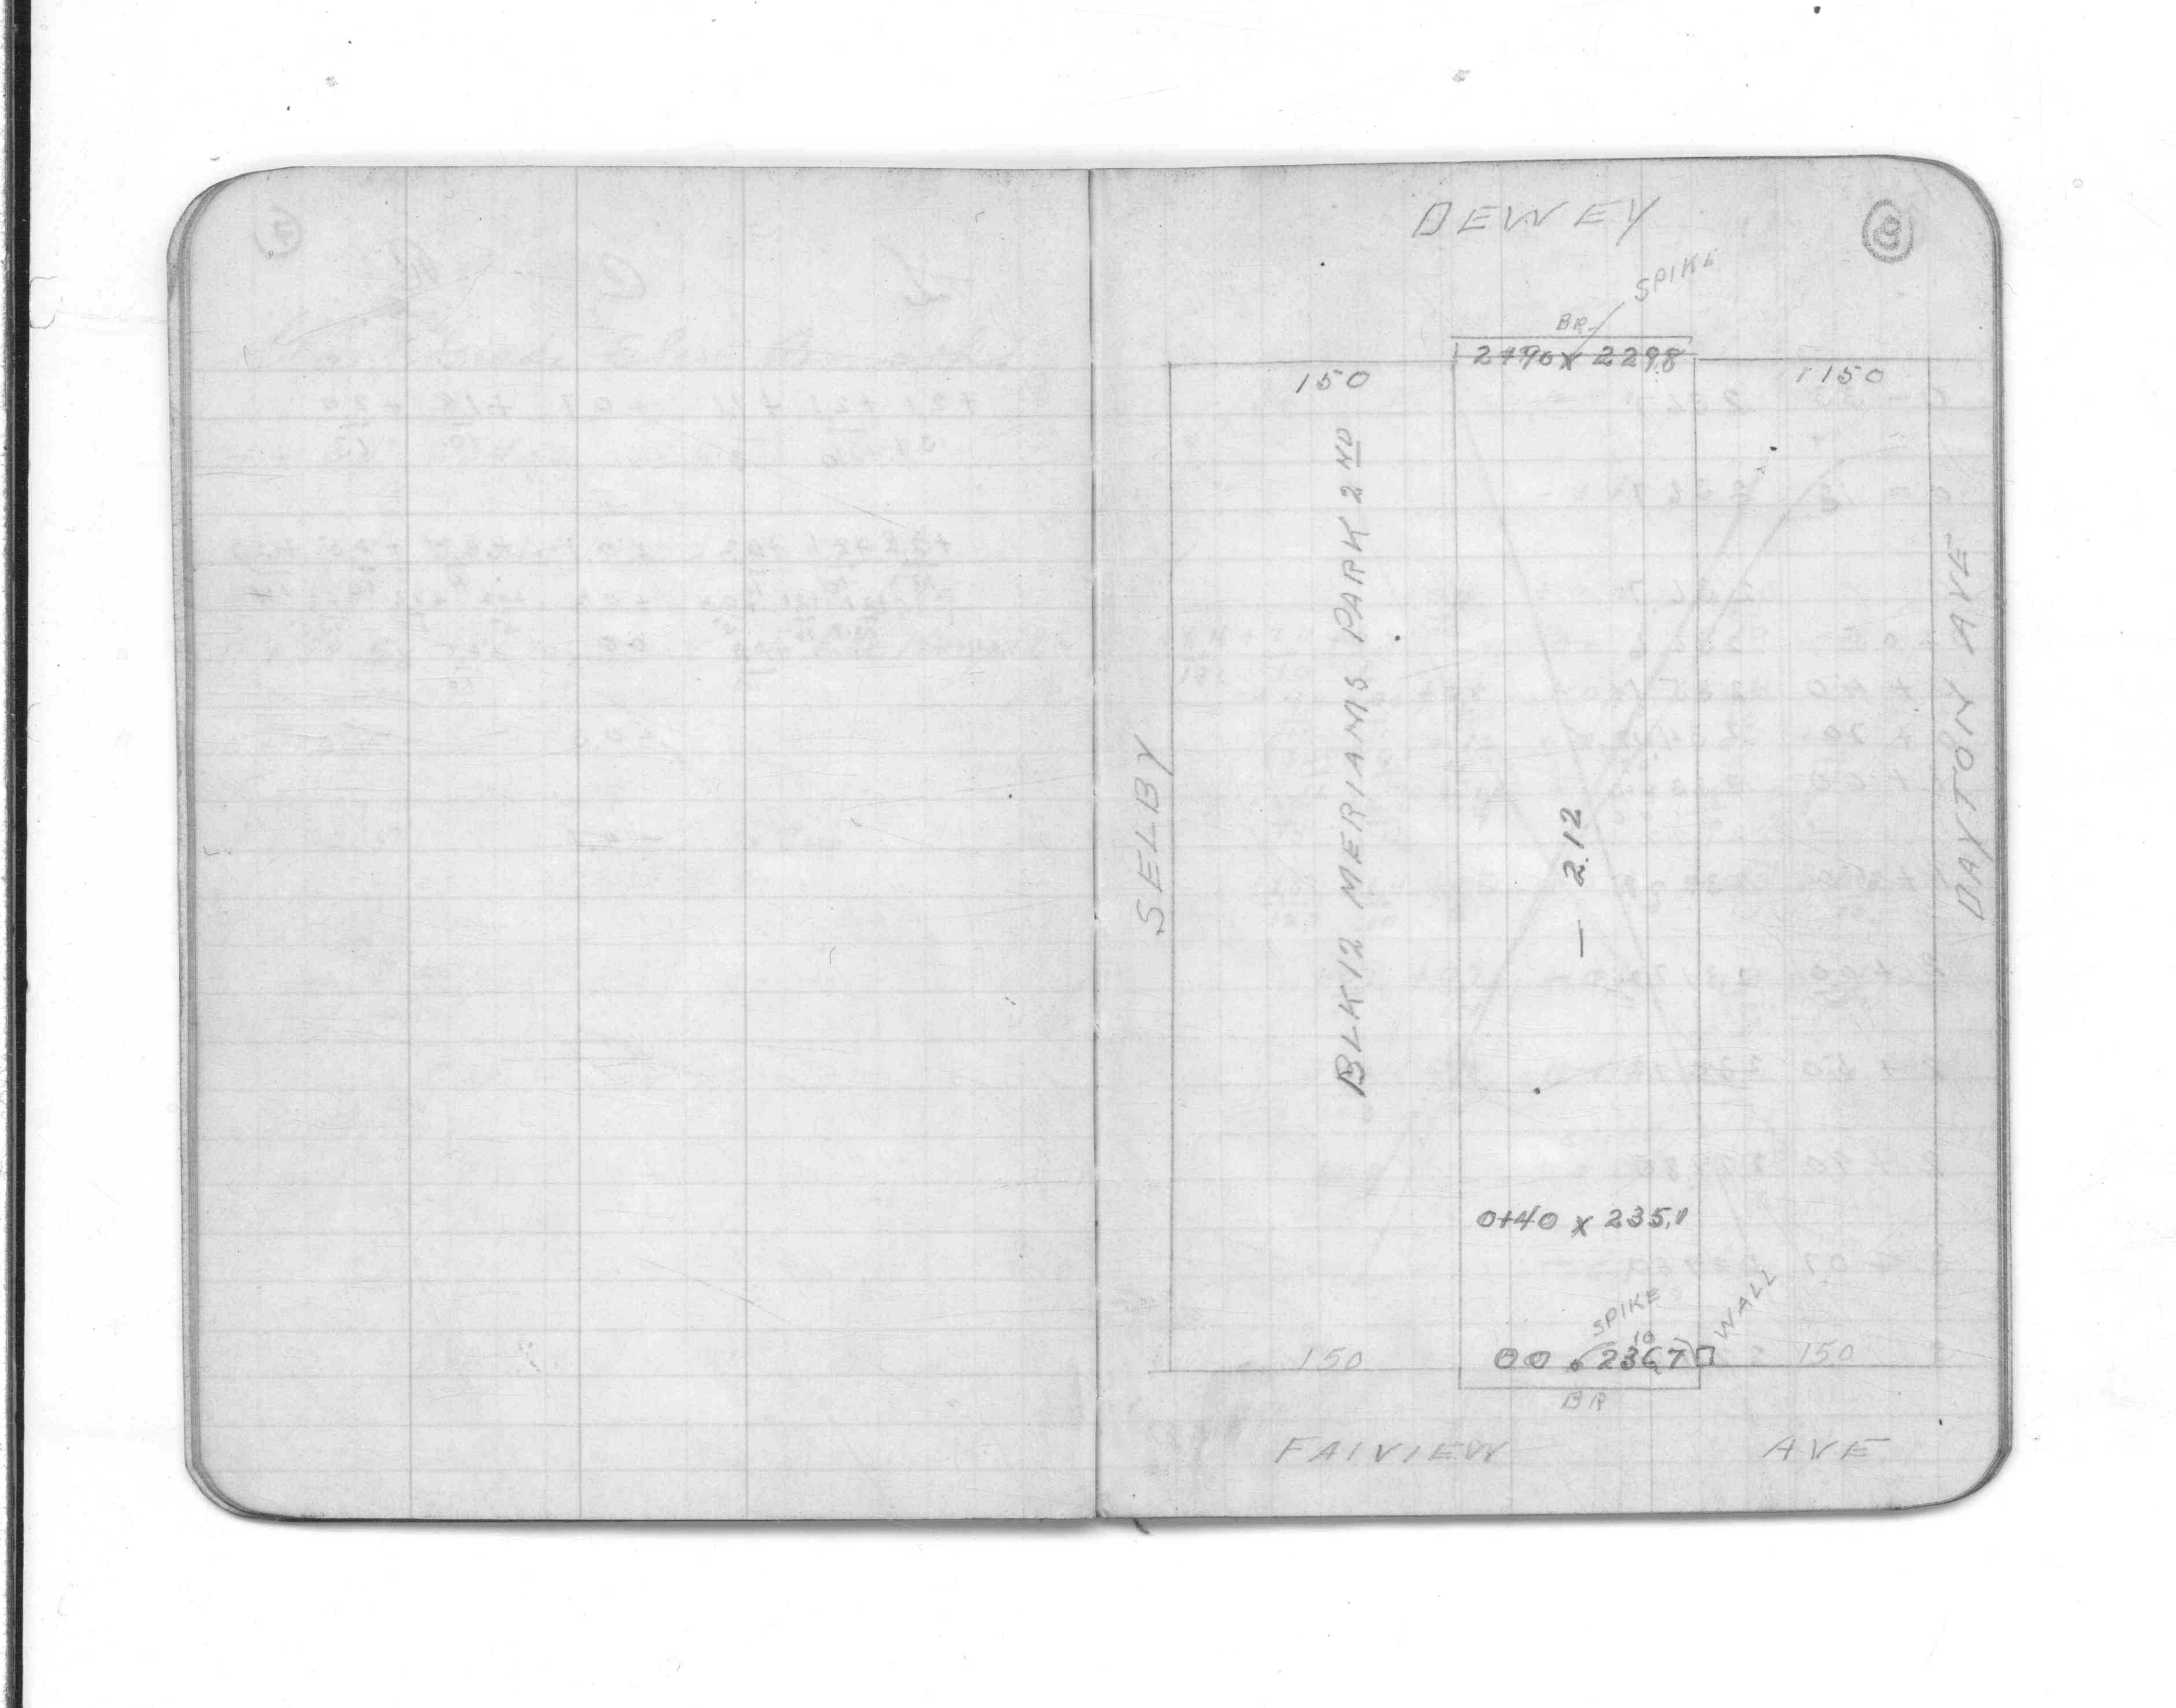 DEWEY
SPIKE
BR
2+90 x 2298
150
150
BLK 12 MERIAMS PARK 2 ND
SELBY
DAYTON AVE
— 2.12
0+40 x 235.1
SPIKE
WALL
10
00 2367
150
150
BR
FAIVIEW AVE